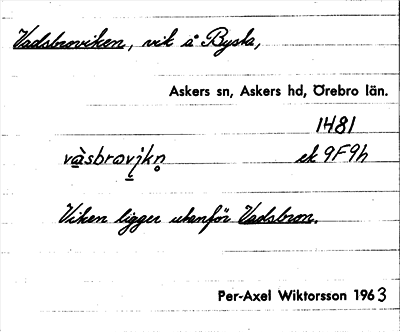 Vadsbroviken, vik å Bysta,
Askers sn, Askers hd, Örebro län.
1481
vàsbrovjkn̥ ek 9F9h
Viken ligger utanför Vadsbron.
Per-Axel Wiktorsson 1963